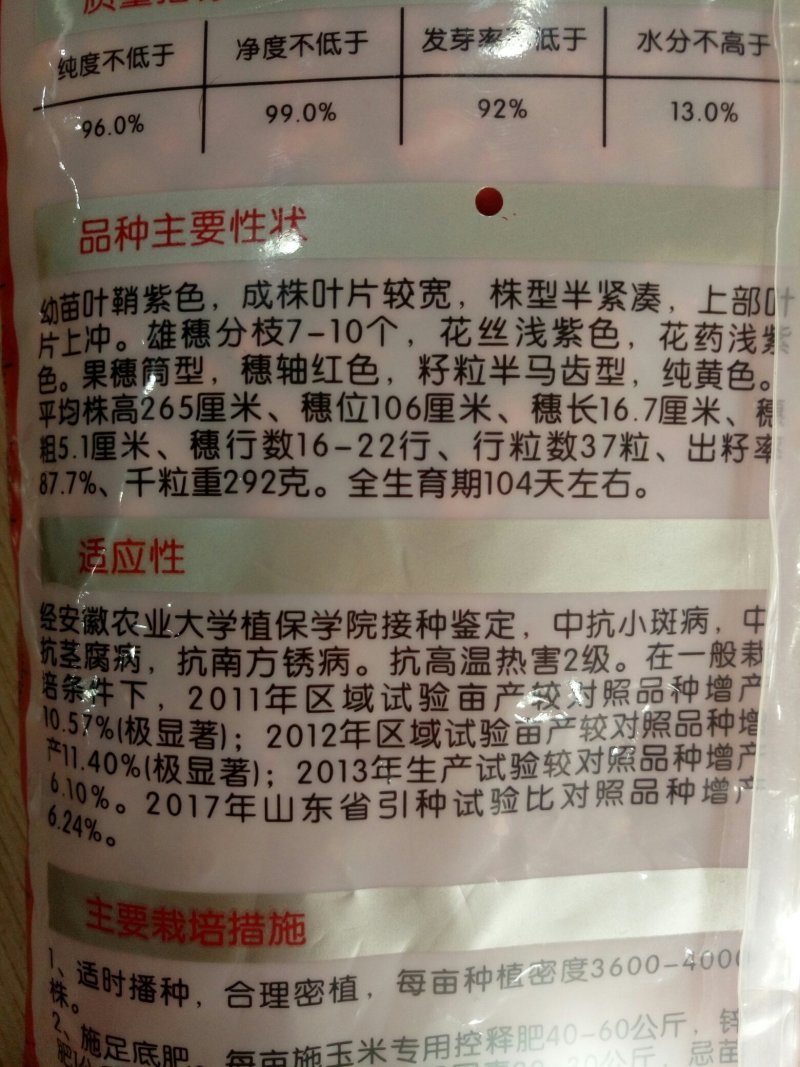 质量指
纯度不低于 净度不低于 发芽率 低于 水分不高于
96.0% 99.0% 92% 13.0%
品种主要性状
幼苗叶鞘紫色，成株叶片较宽，株型半紧凑，上部叶
片上冲。雄穗分枝7-10个，花丝浅紫色，花药浅紫
色。果穗筒型，穗轴红色，籽粒半马齿型，纯黄色。
平均株高265厘米、穗位106厘米、穗长16.7厘米、穗
粗5.1厘米、穗行数16-22行、行粒数37粒、出籽率
87.7%、千粒重292克。全生育期104天左右。
适应性
经安徽农业大学植保学院接种鉴定，中抗小斑病，中
抗茎腐病，抗南方锈病。抗高温热害2级。在一般栽
培条件下，2011年区域试验亩产较对照品种增产
10.57%(极显著)；2012年区域试验亩产较对照品种增
产11.40%(极显著)；2013年生产试验较对照品种增产
6.10%。2017年山东省引种试验比对照品种增产
6.24%。
主要栽培措施
1、适时播种，合理密植，每亩种植密度3600-4000
株。
2、施足底肥。每亩施玉米专用控释肥40-60公斤，锌
肥1公 30公斤，忌苗